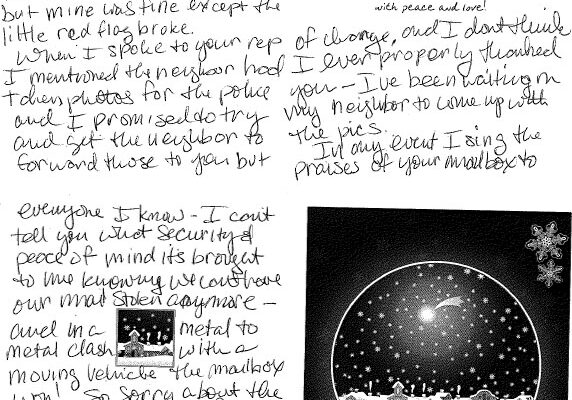 but mine was fine except the
little red flag broke.
When I spoke to your rep
I mentioned the neighbor had
taken photos for the police
and I promised to try
and get the neighbor to
forward those to you but
with peace and love!
of change, and I don't think
I ever properly thanked
you – I've been waiting on
my neighbor to come up with
the pics.
In any event I sing the
praises of your mailbox to
everyone I know – I can't
tell you what security &
peace of mind it's brought
to me knowing we can't have
our mail stolen anymore –
and in a metal to
metal clash with a
moving vehicle the mailbox
won! So sorry about the